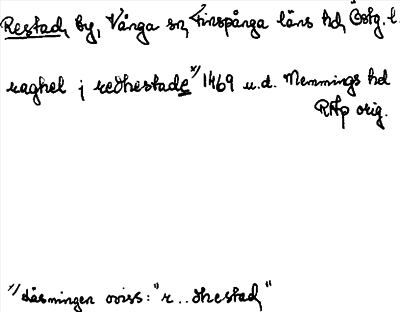 Restad, by, Vånga sn, Finspånga läns hd, Östg. l.
raghel j redhestade *) 1469 u.d. Memmings hd
RAp orig.
*) Läsningen oviss: "r..dhestad"